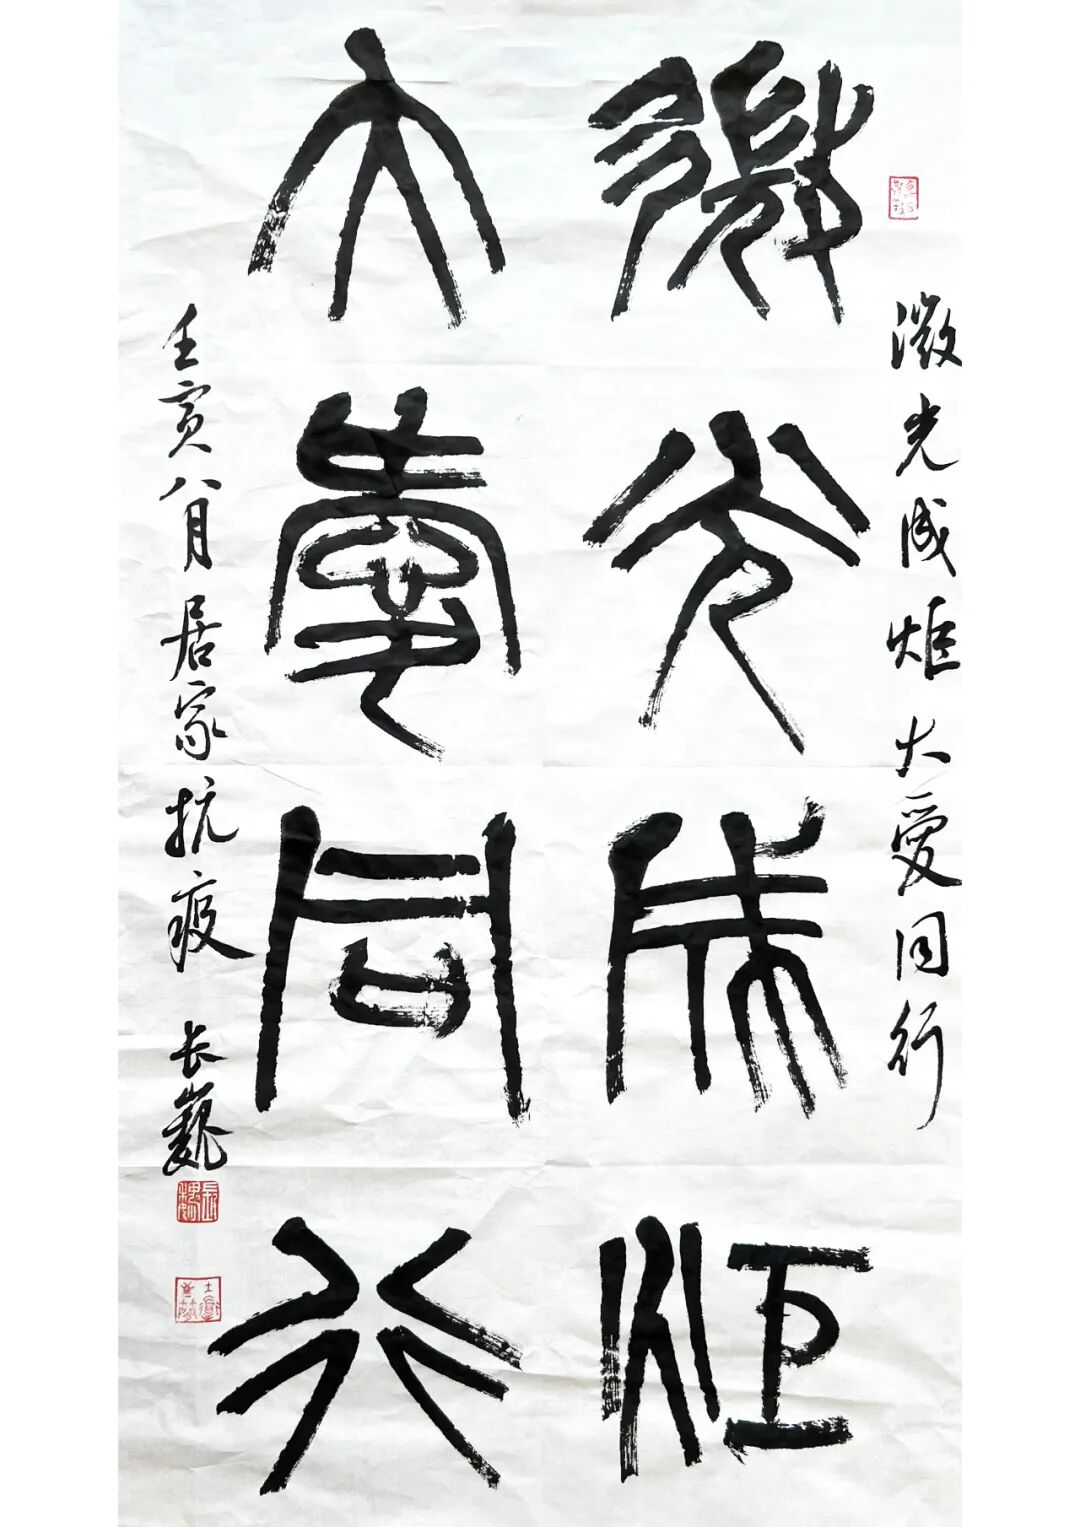 微光成炬大愛同行
微光成炬
大愛同行
壬寅八月居家抗疫 长巍